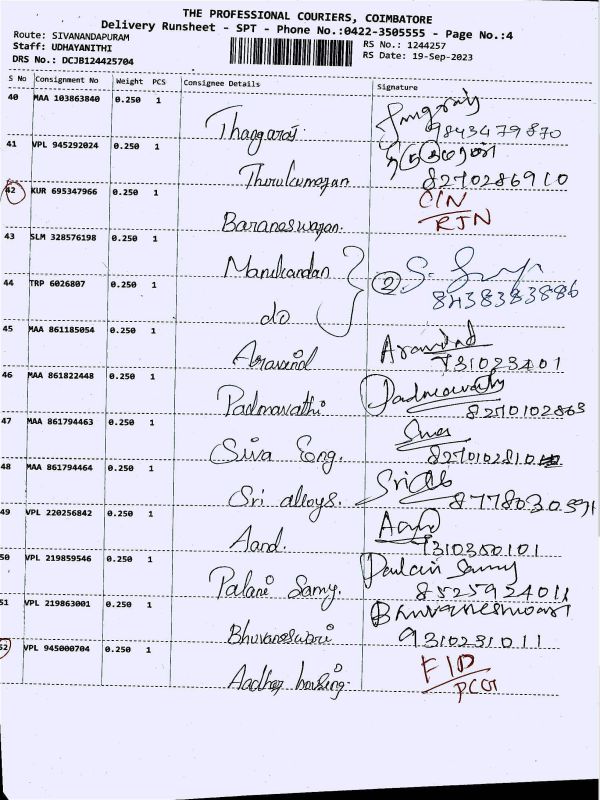 THE PROFESSIONAL COURIERS, COIMBATORE
Delivery Runsheet - SPT - Phone No.:0422-3505555 - Page No.:4
Route: SIVANANDAPURAM
Staff: UDHAYANITHI
DRS No.: DCJB124425704
RS No.: 1244257
RS Date: 19-Sep-2023
S No Consignment No Weight PCS Consignee Details Signature
40 MAA 103863840 0.250 1
Thangaraj 9843479870
41 VPL 945292024 0.250 1
Thirukumaran 8270286910
42 KUR 695347966 0.250 1 CIN
Baraneswaran. RTN
43 SLM 328576198 0.250 1
Manikandan 2
44 TRP 6026807 0.250 1 8438383886
do
45 MAA 861185054 0.250 1 Aravind
Aravind 731023401
46 MAA 861822448 0.250 1 Padmavathi
Padmavathi 8270102863
47 MAA 861794463 0.250 1 Siva
Siva Eng. 827010281
48 MAA 861794464 0.250 1
Sri alloys. 8778030591
49 VPL 220256842 0.250 1 Aand
Aand. 7310350101
50 VPL 219859546 0.250 1 Samy
Palani Samy. 8525924011
51 VPL 219863001 0.250 1 Bhuvaneshwari
Bhuvaneswari 9310231011
52 VPL 945000704 0.250 1
Aadhar housing.